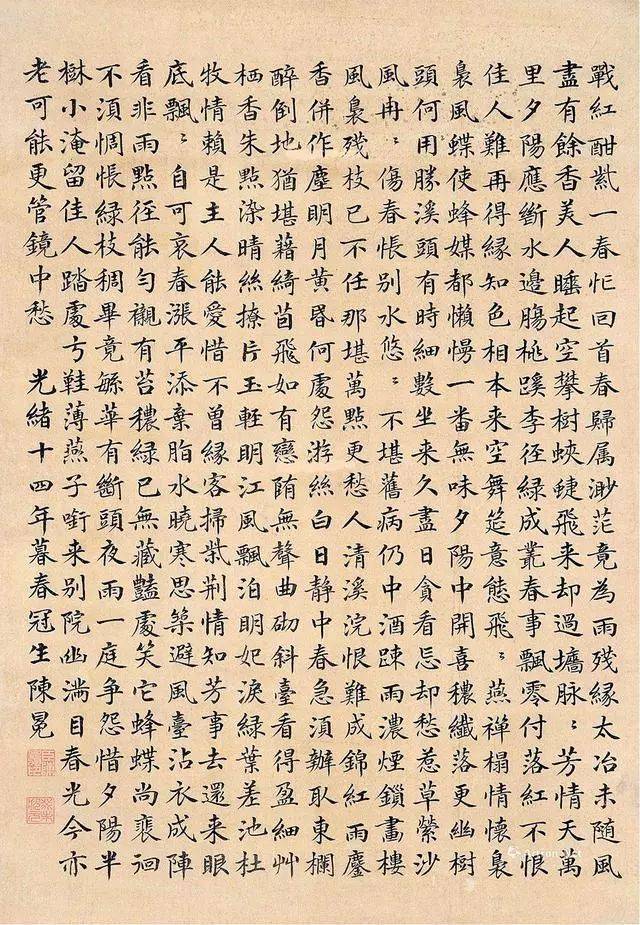 戰紅酣紫一春忙回首春歸属渺茫竟為雨殘緣太冶未随風
盡有餘香美人睡起空攀樹蛺蝶飛来却過墻脉〻芳情天萬
里夕陽應斷水邊腸桃蹊李徑緑成叢春事飄零付落紅不恨
佳人難再得緣知色相本来空舞筵意態飛〻燕禪榻情懷裊
裊風蝶使蜂媒都懶慢一番無味夕陽中開喜穠纖落更幽樹
頭何用勝溪頭有時細數坐来久盡日貪看忘却愁惹草縈沙
風冉〻傷春悵別水悠〻不堪舊病仍中酒踈雨濃煙鎖畫樓
風裊殘枝已不任那堪萬點更愁人清溪浣恨難成錦紅雨鏖
香併作塵明月黃昏何處怨游絲白日静中春急須辦取東欄
醉倒地猶堪藉綺茵飛如有戀墮無聲曲砌斜臺看得盈細艸
栖香朱點染晴絲撩片玉輕明江風飄泊明妃淚緑葉差池杜
牧情賴是主人能愛惜不曾緣客掃紫荊情知芳事去還来眼
底飄〻自可哀春漲平添棄脂水曉寒思築避風臺沾衣成陣
看非雨點徑能勻襯有苔穠緑已無藏豔處笑它蜂蝶尚裵徊
不須惆悵緑枝稠畢竟緐華有斷頭夜雨一庭爭怨惜夕陽半
樹小淹留佳人踏處弓鞋薄燕子銜来別院幽滿目春光今亦
老可能更管鏡中愁 光緒十四年暮春冠生陳冕